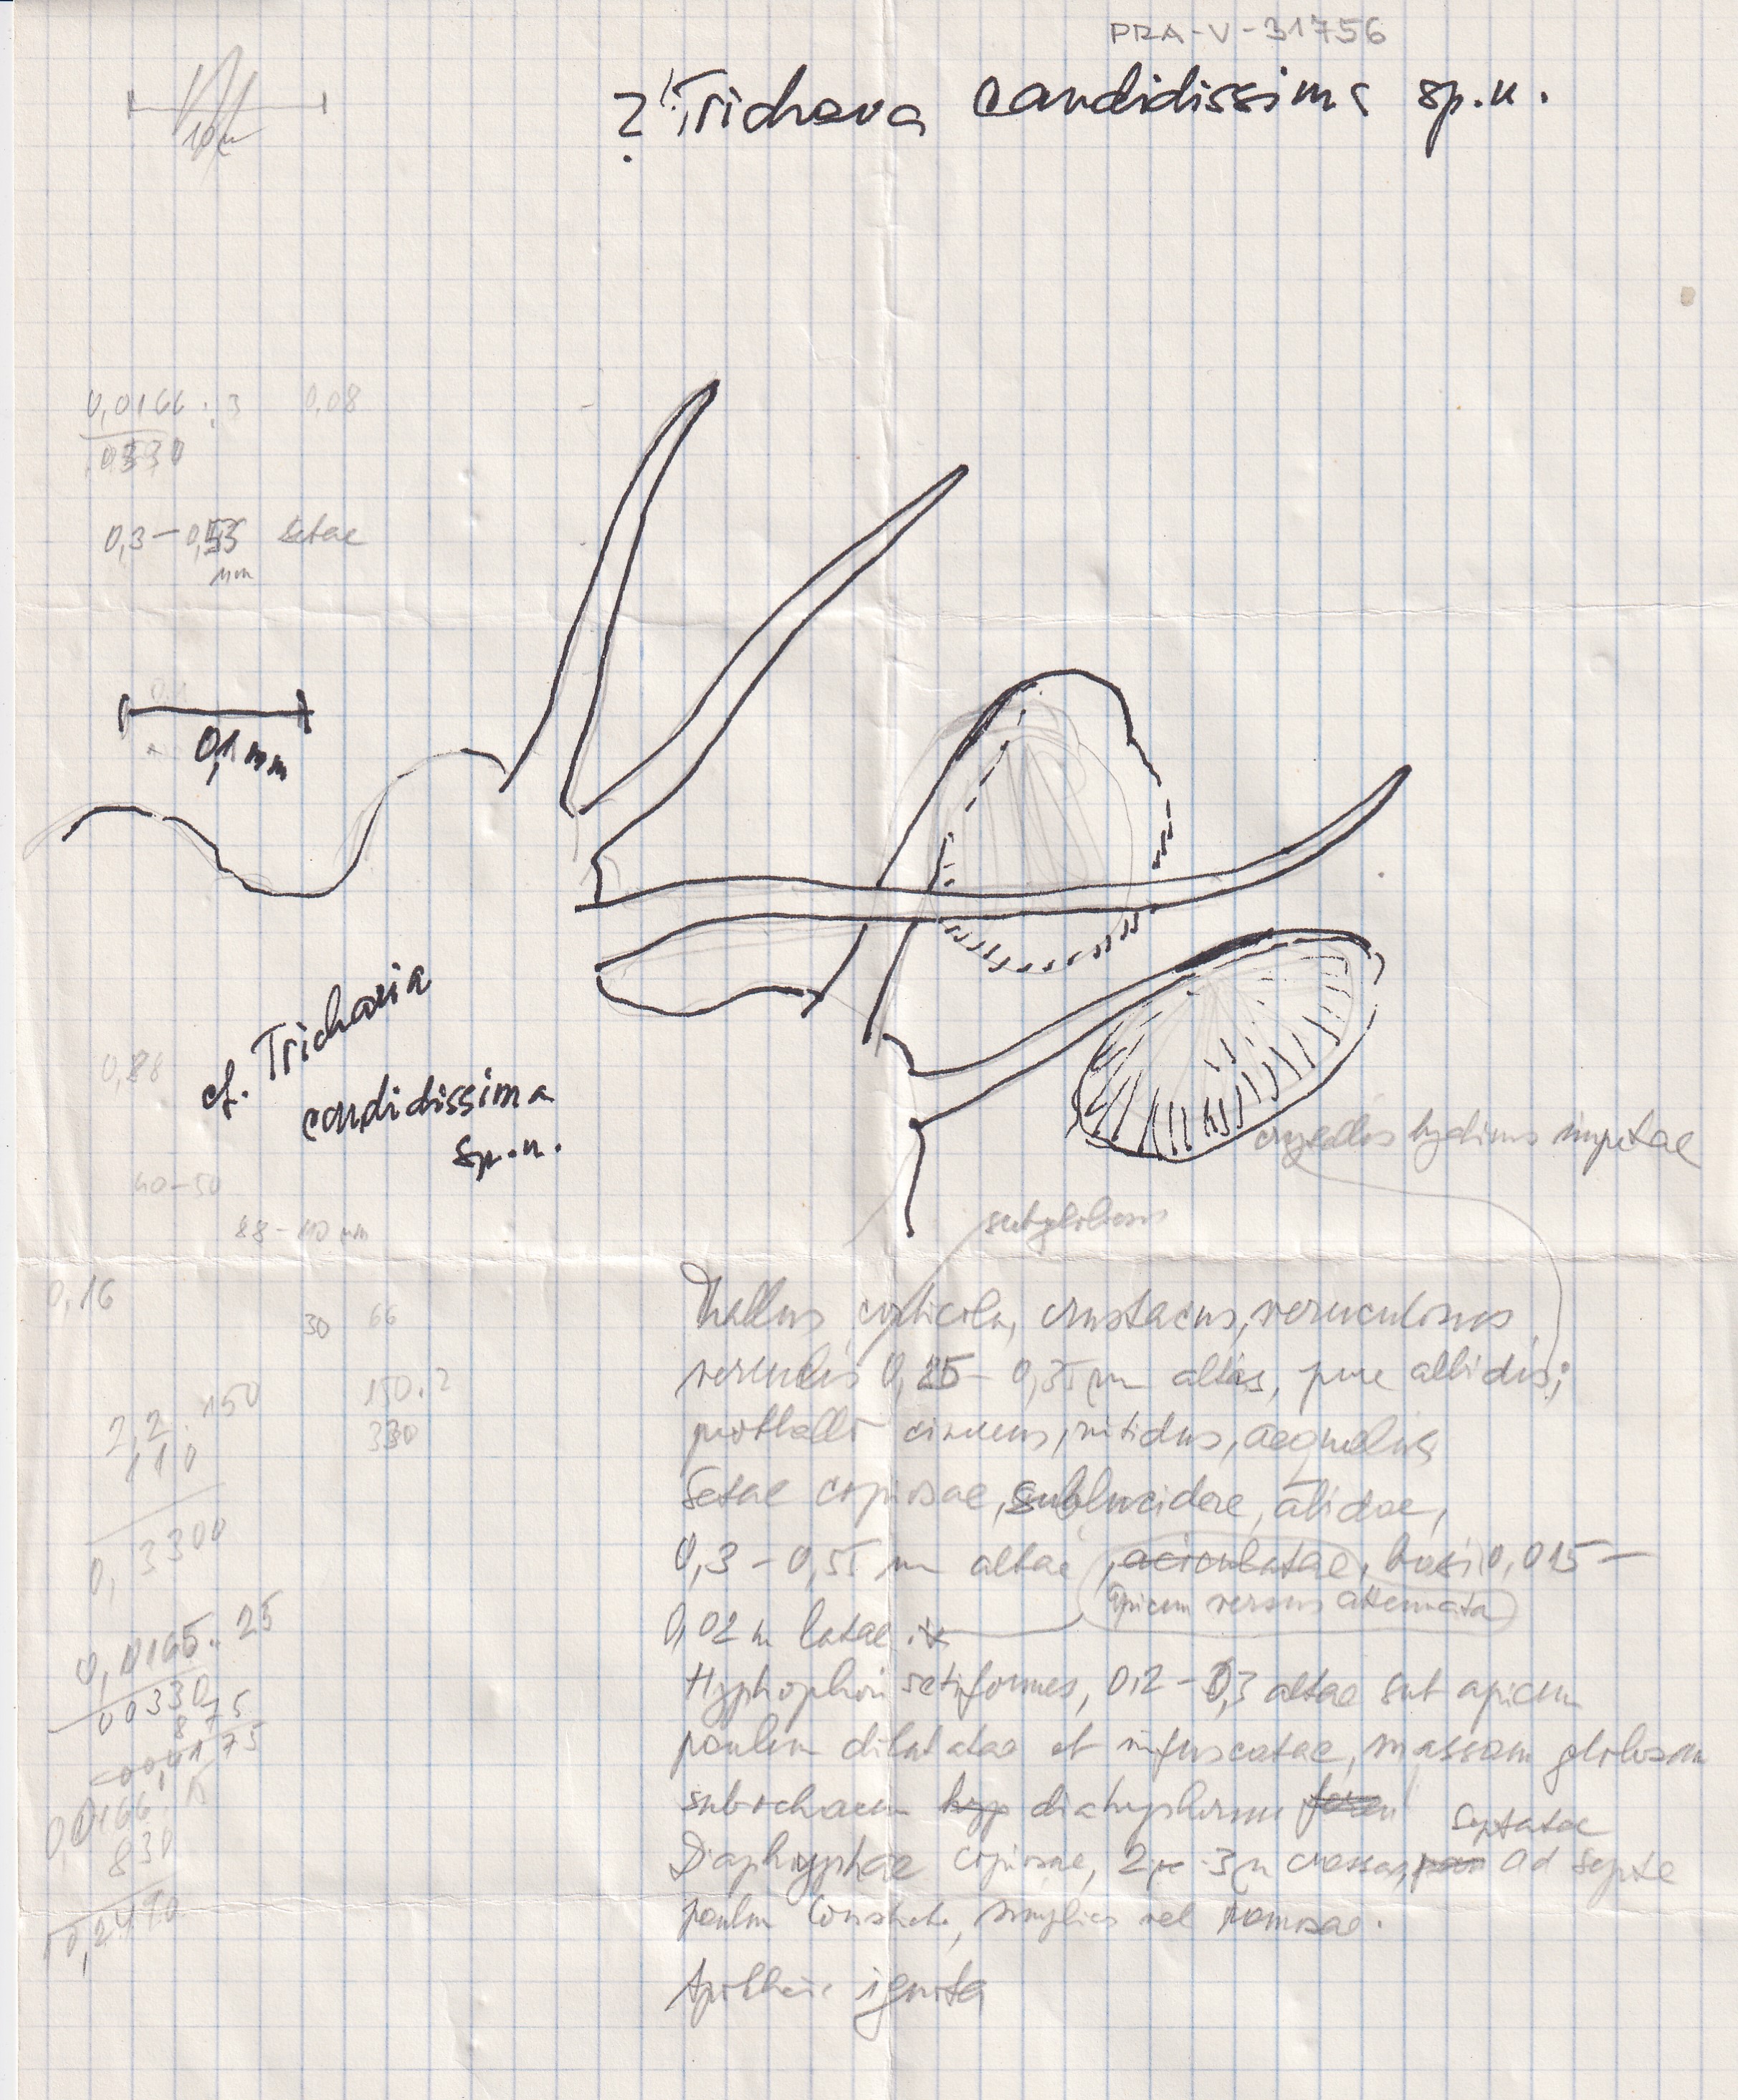 PRA-V-31756
? Tricharia candidissima sp.n.
10µ
0,0166 : 3 0,08
0330
0,3 – 0,55 setae
mm
0.1
0,1 mm
cf. Tricharia
candidissima
sp.n.
0,88
40–50
88 – 110 µm
crystallis hyalinis impletae
subglobosis
0,16
30 66
Thallus corticola, crustaceus, verruculosus
verrucis 0,25 – 0,35 mm altis, pure albidis;
prothallo cinereus, nitidus, aequalis
Setae copiosae, sublucidae, albidae,
0,3 – 0,55 m altae, aciculatae, basi 0,015 –
apicem versus attenuata
0,02 m latae
Hyphophori setiformes, 0,2 – 0,3 altae sub apicem
paulum dilatatae et infuscatae, massam globosam
hyp diahypharum
Septatae
Diaphyphae copiosae, 2µ – 3µ crassae, ad septa
paulum constricta, simplices vel ramosae.
Apothecia ignota
2,2 . 150
110
0,3300
150.2
330
0,0165 . 25
00330
875
0,0166 . 15
830
0,2490